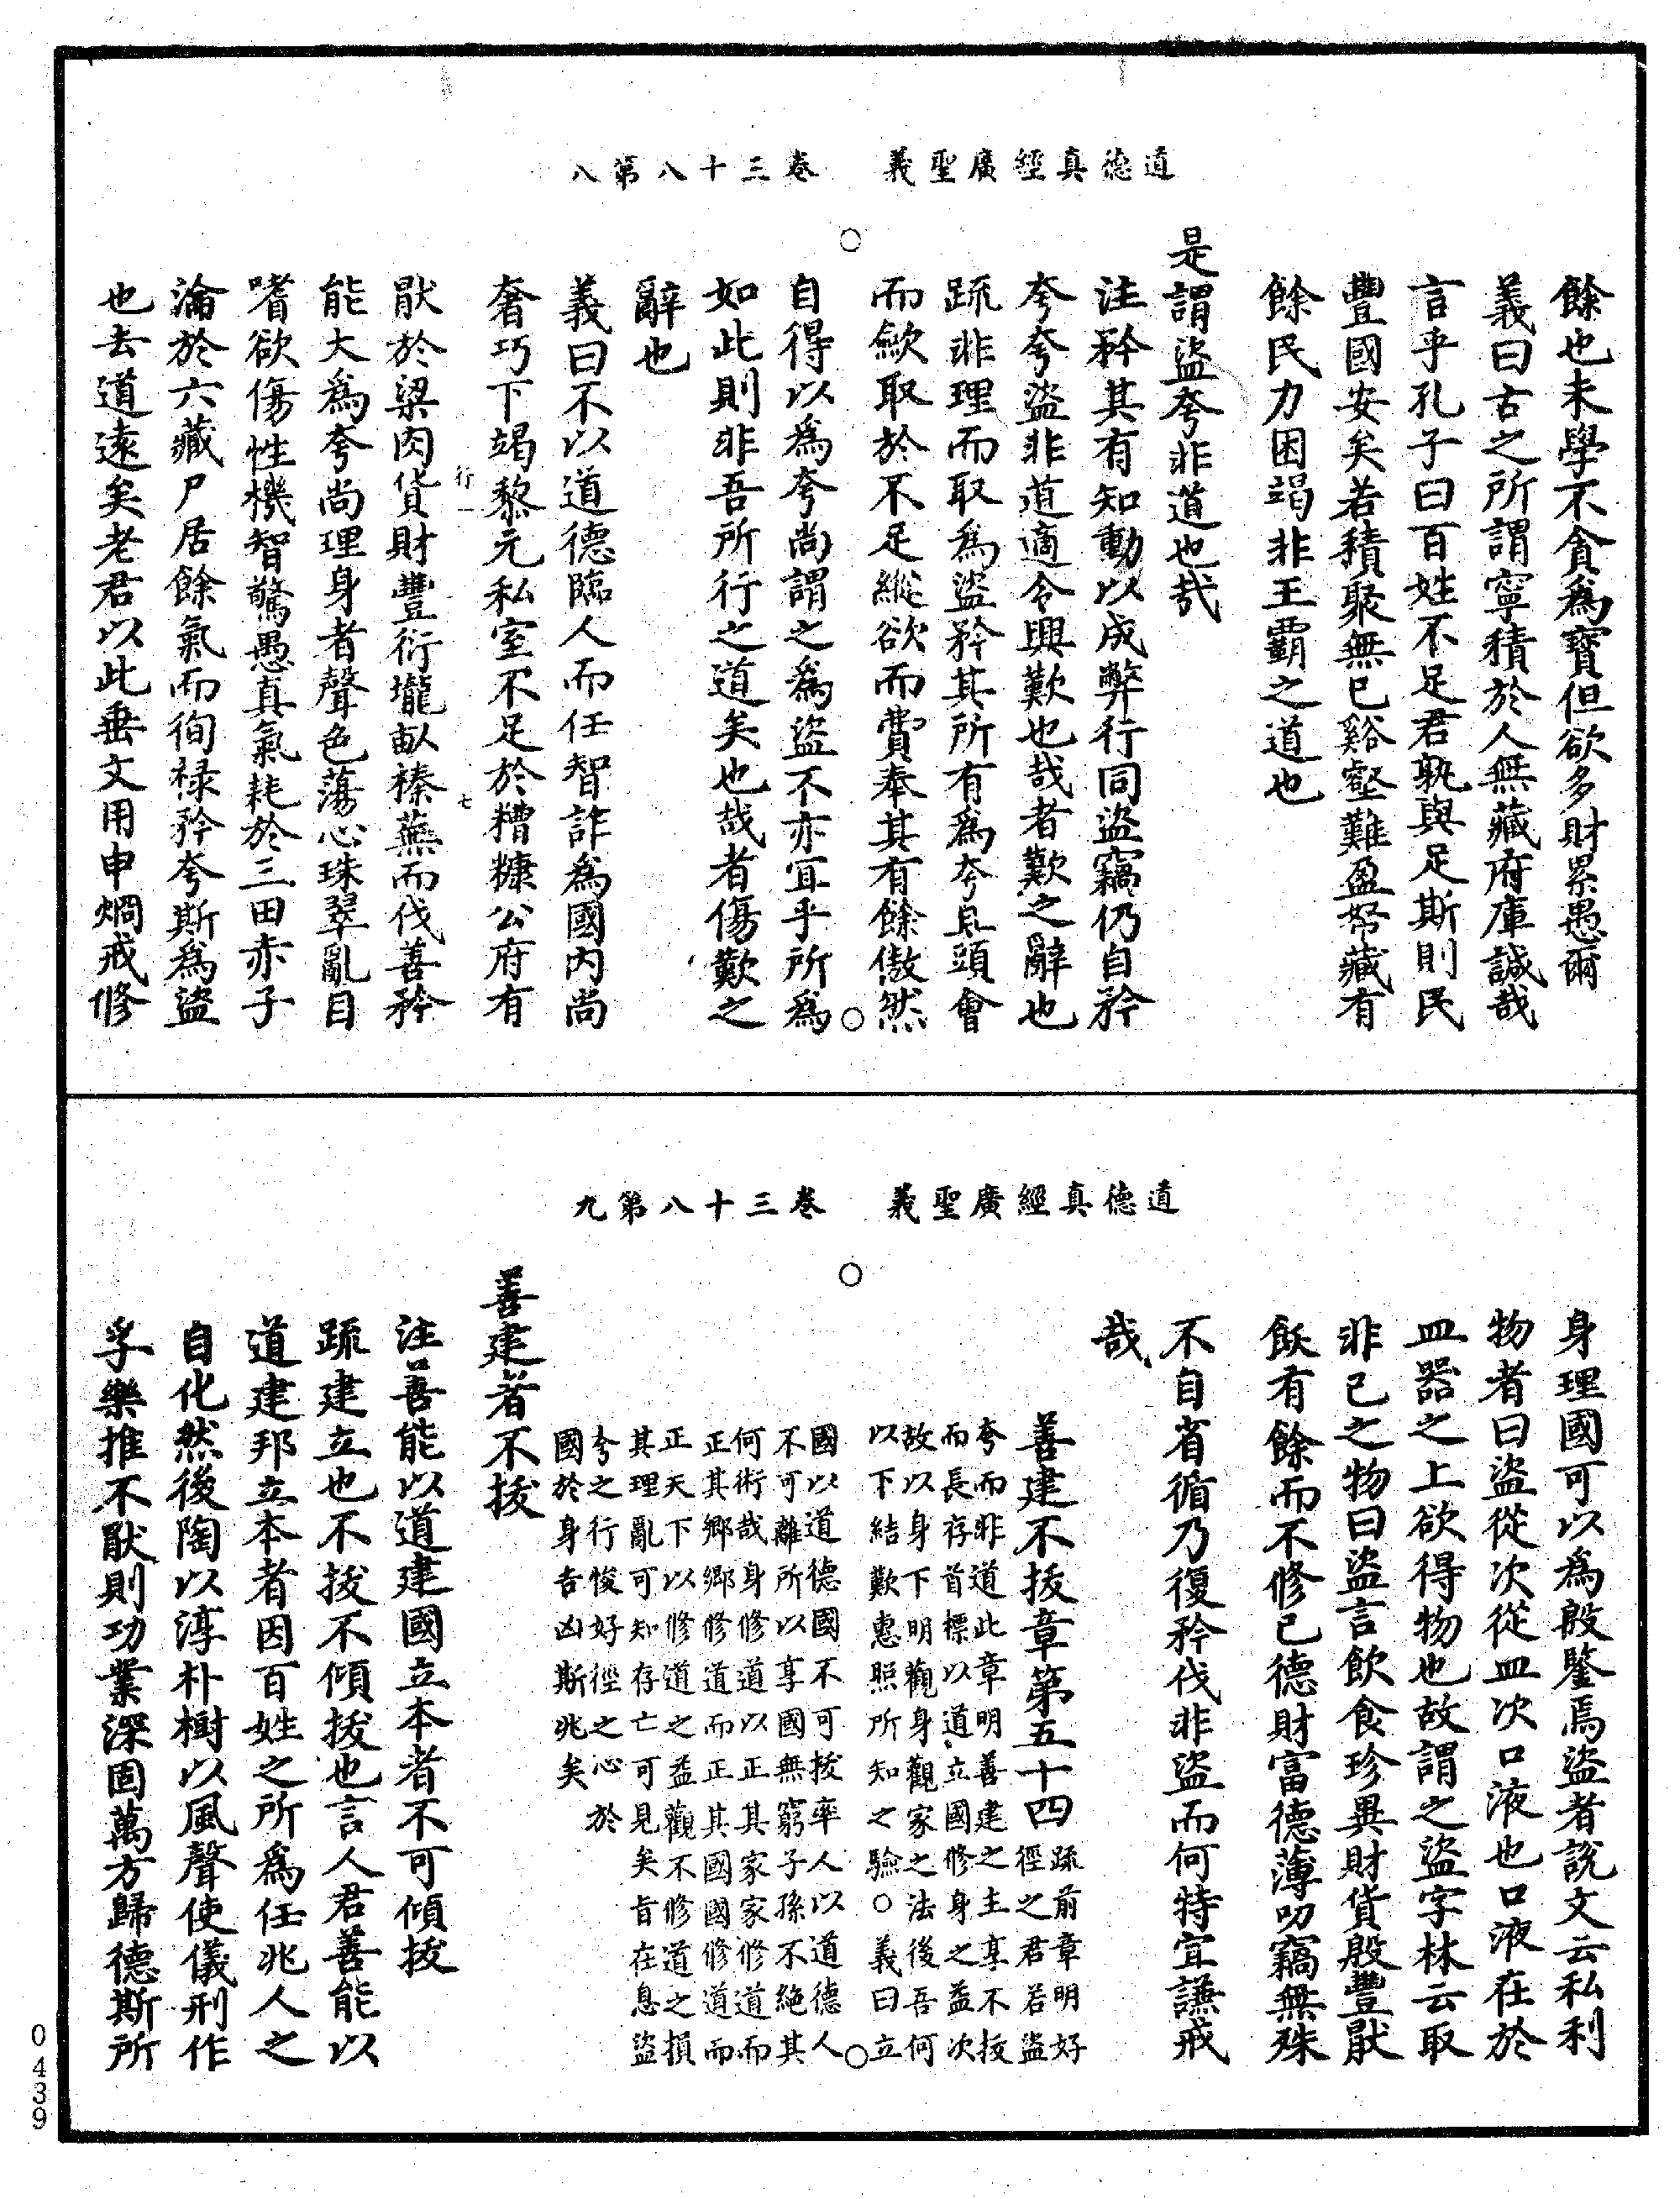 道德真經廣聖義　卷三十八第八
餘也未學不貪爲寶但欲多財累愚爾
義曰古之所謂寧積於人無藏府庫誠哉
言乎孔子曰百姓不足君孰與足斯則民
豐國安矣若積聚無已谿壑難盈帑藏有
餘民力困竭非王霸之道也
是謂盜夸非道也哉
注矜其有知動以成弊行同盜竊仍自矜
夸夸盜非道適令興歎也哉者歎之辭也
䟽非理而取爲盜矜其所有爲夸且頭會
而斂取於不足縱欲而費奉其有餘傲然
自得以爲夸尚謂之爲盜不亦宜乎所爲
如此則非吾所行之道矣也哉者傷歎之
辭也
義曰不以道德臨人而任智詐爲國内尚
奢巧下竭黎元私室不足於糟糠公府有
行一　七
猒於梁肉貨財豐衍壠畒榛蕪而伐善矜
能大爲夸尚理身者聲色蕩心珠翠亂目
嗜欲傷性機智驚愚真氣耗於三田赤子
淪於六藏尸居餘氣而徇禄矜夸斯爲盜
也去道遠矣老君以此垂文用申烱戒修
道德真經廣聖義　卷三十八第九
身理國可以爲殷鑒焉盜者說文云私利
物者曰盜從次從皿次口液也口液在於
皿器之上欲得物也故謂之盜字林云取
非己之物曰盜言飲食珍異財貨殷豐猒
飫有餘而不修己德財富德薄叨竊無殊
不自省循乃復矜伐非盜而何特宜謙戒
哉
善建不拔章第五十四䟽前章明好徑之君若盜
夸而非道此章明善建之主享不拔
而長存首標以道立國修身之益次
故以身下明觀身觀家之法後吾何
以下結歎惠照所知之驗○義曰立
國以道德國不可拔率人以道德人
不可離所以享國無窮子孫不絶其
何術哉身修道以正其家家修道而
正其鄉鄉修道而正其國國修道而
正天下以修道之益觀不修道之損
其理亂可知存亡可見矣旨在息盜
夸之行悛好徑之心於
國於身吉凶斯兆矣
善建者不拔
注善能以道建國立本者不可傾拔
䟽建立也不拔不傾拔也言人君善能以
道建邦立本者因百姓之所爲任兆人之
自化然後陶以淳朴樹以風聲使儀刑作
孚樂推不猒則功業深固萬方歸德斯所
0439